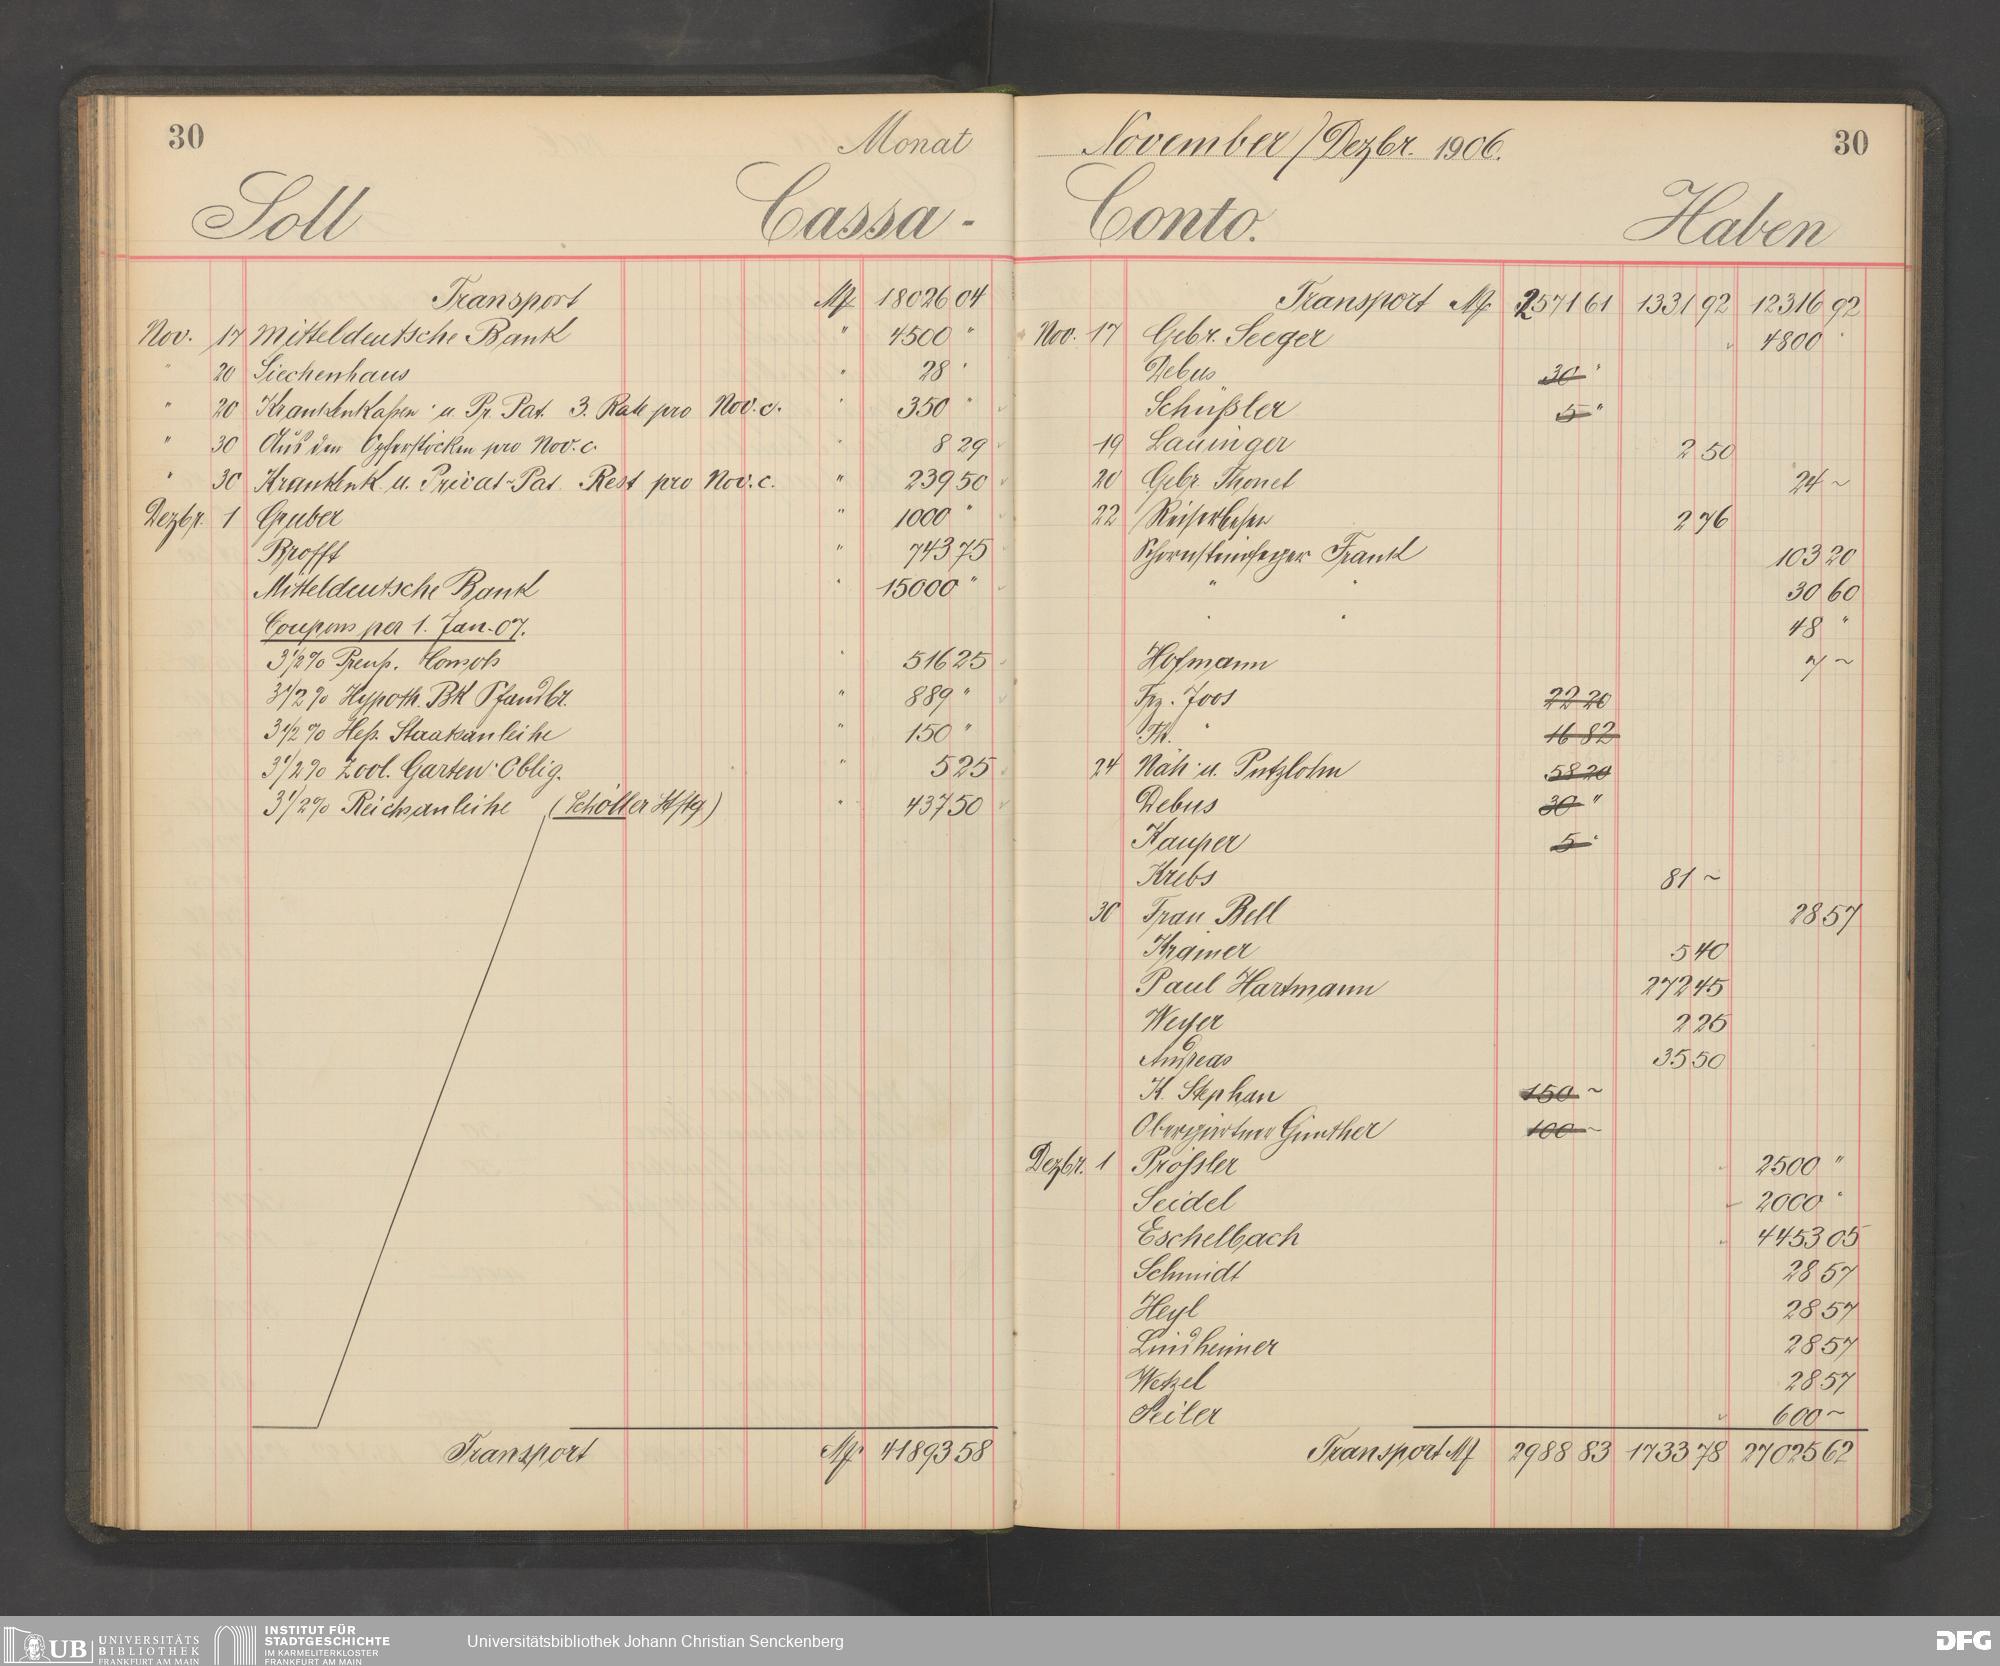 30
Monat
Soll
Cassa -
Transport M 18026 04
Nov. 17 Mitteldeutsche Bank " 4500 "
" 20 Siechenhaus " 28 "
" 20 Krankenkaßen u. Pr. Pat. 3. Rate pro Nov. c. " 350 "
" 30 Aus den Opferstöcken pro Nov. c. " 8 29
" 30 Krankenk. u. Privat-Pat. Rest pro Nov. c. " 239 50
Dezbr. 1 Gruber " 1000 "
Brofft " 743 75
Mitteldeutsche Bank " 15000 "
Coupons per 1. Jan. 07.
3 1/2 % Preuß. Consols " 516 25
3 1/2 % Hypoth. Bk Pfandbr. " 889 "
3 1/2 % Heß. Staatsanleihe " 150 "
3 1/2 % Zool. Garten Oblig. " 5 25
3 1/2 % Reichsanleihe (Schöller Stftg) " 437 50
Transport M 41893 58
November / Dezbr. 1906.
30
Conto.
Haben
Transport M 2571 61 1331 92 12316 92
Nov. 17 Gebr. Seeger 4800 "
Debus 30 "
Schüßler 5 "
19 Lauinger 2 50
20 Gebr. Thonet 24 ~
22 Reiserbesen 2 76
Schornsteinfeger Frank 103 20
" " 30 60
" " 48 "
Hofmann 7 ~
Frz. Joos 22 20
Th. " 16 82
24 Näh- u. Putzlohn 58 20
Debus 30 "
Kauper 5 "
Krebs 81 ~
30 Frau Bell 28 57
Kramer 5 40
Paul Hartmann 272 45
Weyer 2 25
Andreas 35 50
K. Stephan 150 ~
Obergärtner Günther 100 ~
Dezbr. 1 Prößler 2500 "
Seidel 2000 "
Eschelbach 4453 05
Schmidt 28 57
Heyl 28 57
Lindheimer 28 57
Wetzel 28 57
Seiler 600 ~
Transport M 2988 83 1733 78 27025 62
UB UNIVERSITÄTS
BIBLIOTHEK
FRANKFURT AM MAIN
INSTITUT FÜR
STADTGESCHICHTE
IM KARMELITERKLOSTER
FRANKFURT AM MAIN
Universitätsbibliothek Johann Christian Senckenberg
DFG